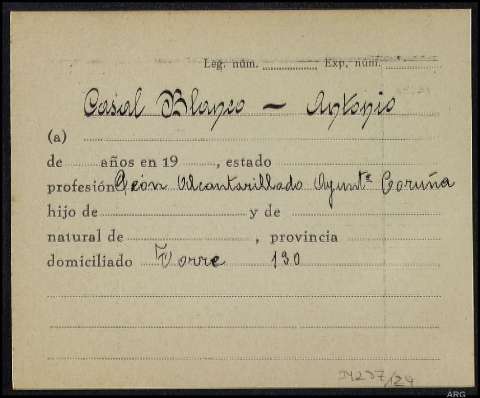 Leg. núm. Exp. núm.
Casal Blanco - Antonio
(a)
de años en 19 , estado
profesión Peón Alcantarillado Ayuntº Coruña
hijo de y de
natural de , provincia
domiciliado Torre 130
24237/24
ARG